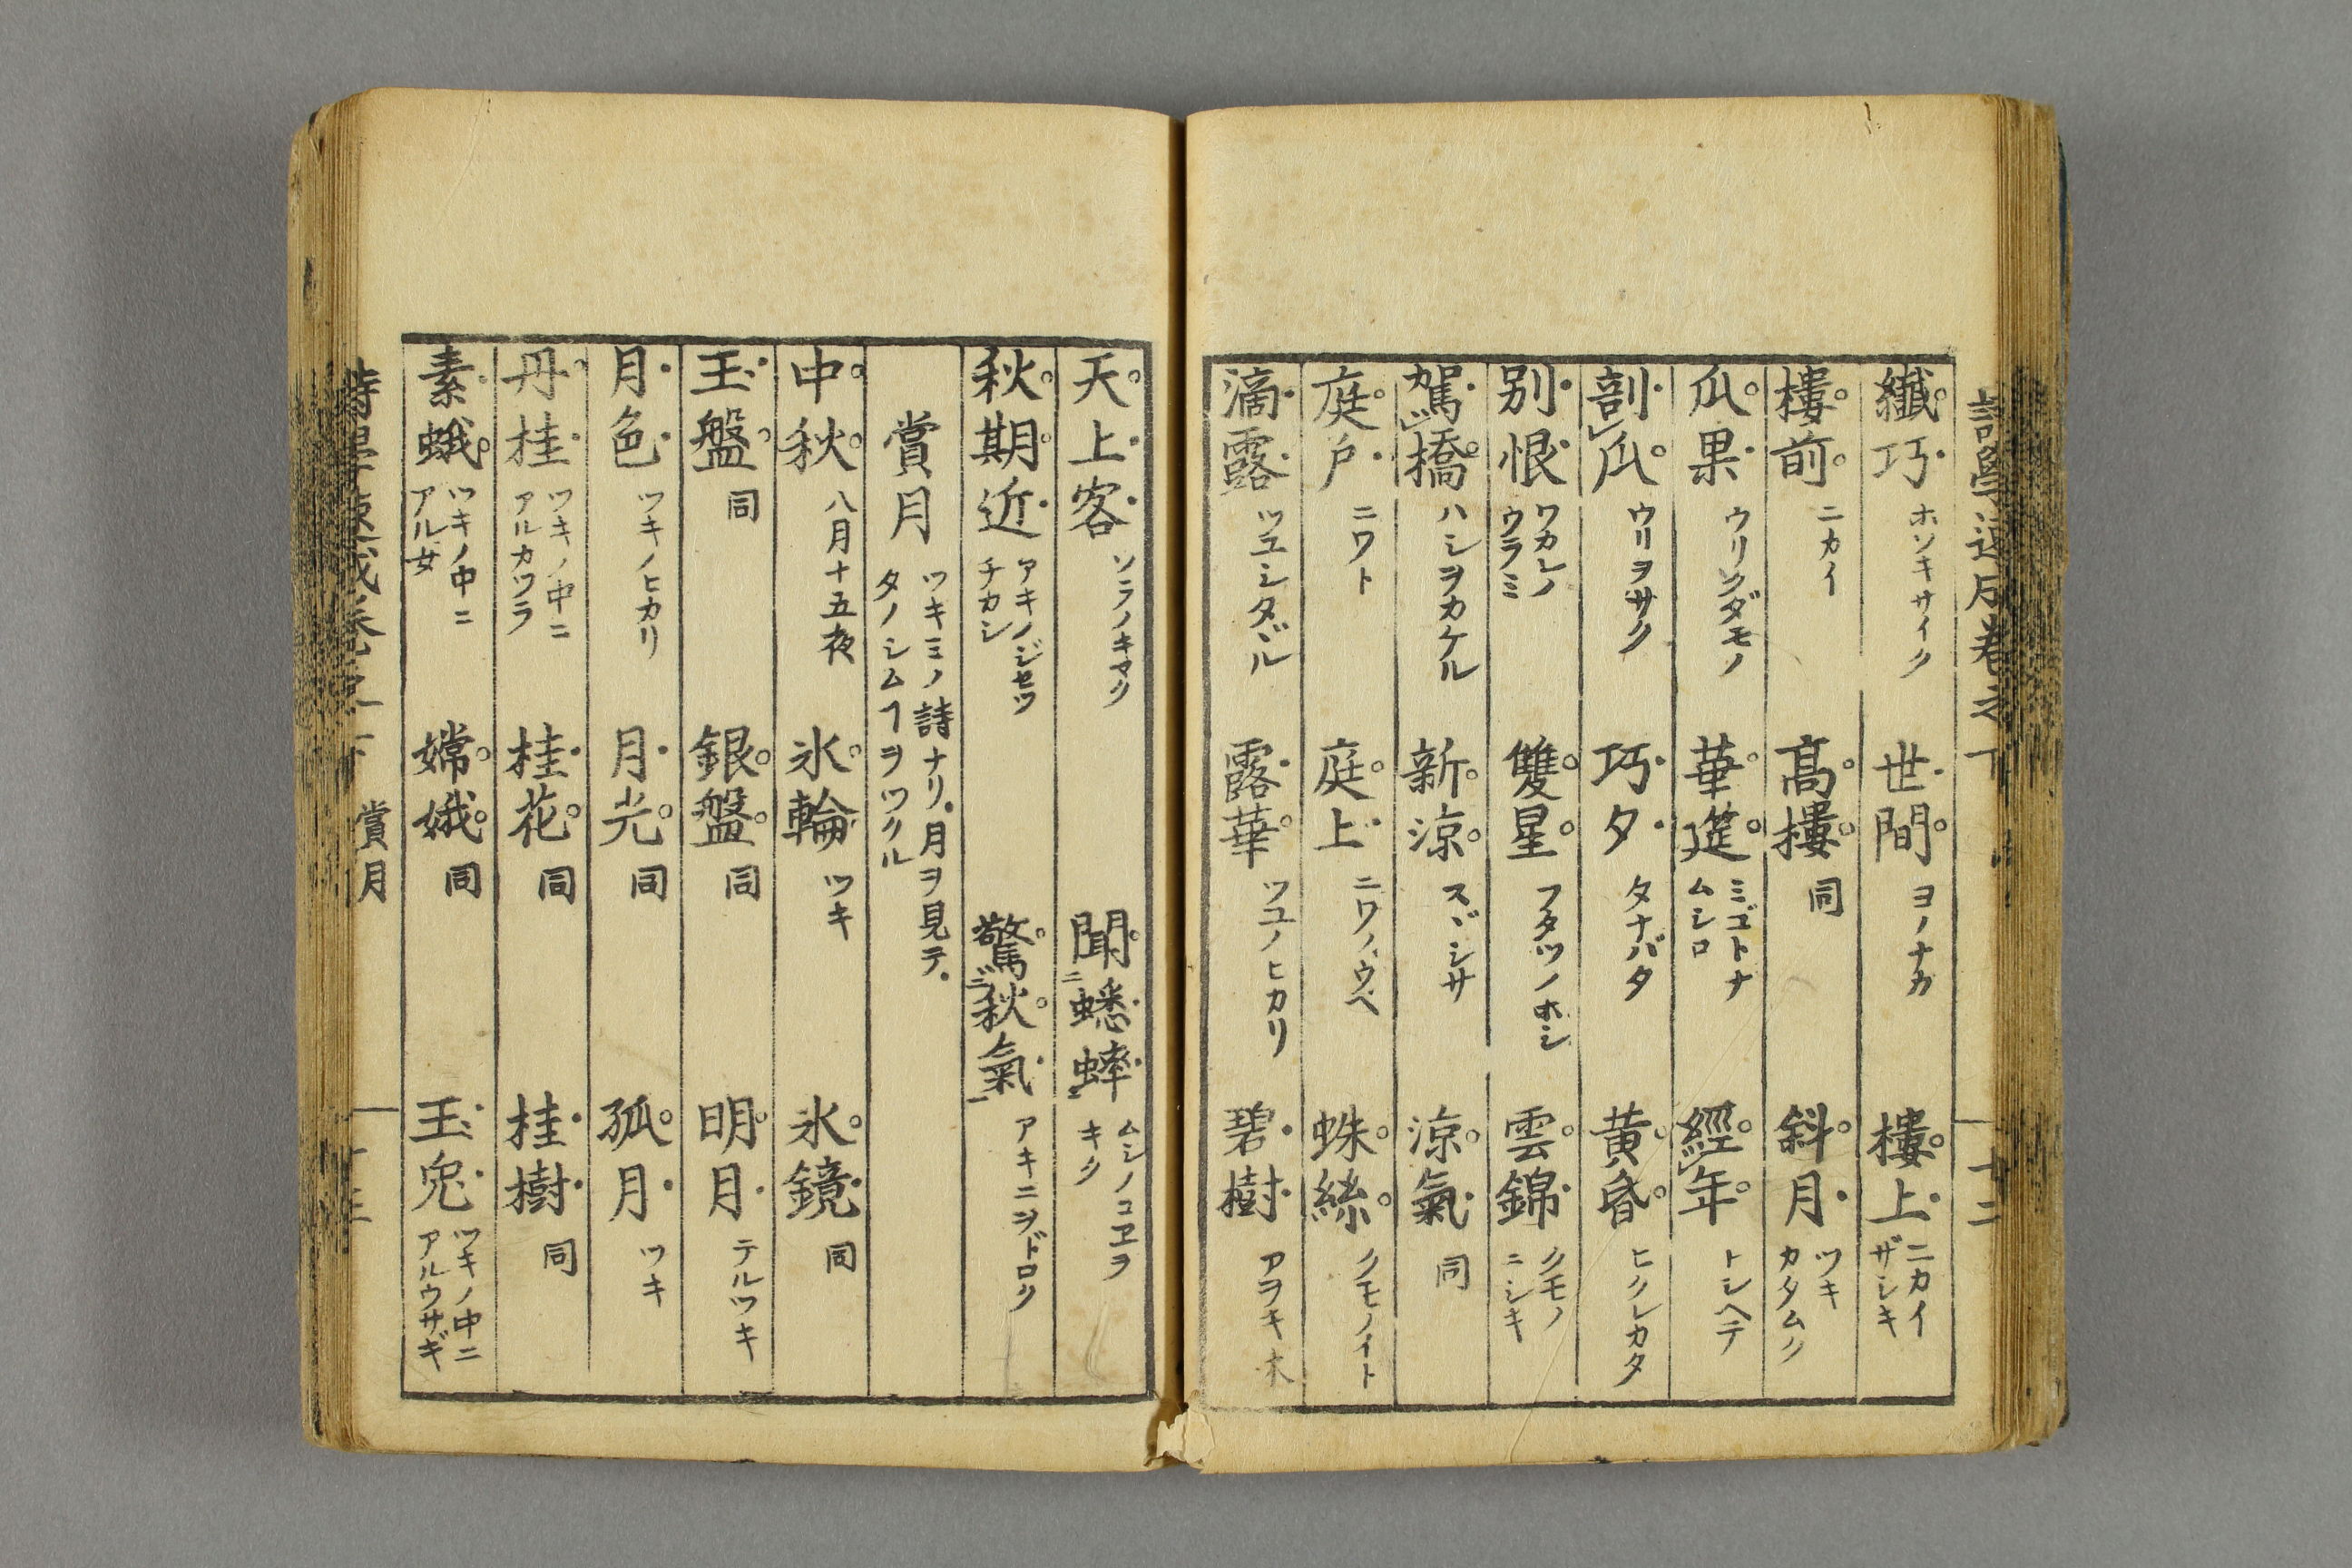 纖巧 ホソキサイク 世間 ヨノナカ 樓上 ニカイザシキ
樓前 ニカイ 髙樓 同 斜月 ツキカタムク
瓜果 ウリクダモノ 華筵 ミゴトナムシロ 經年 トシヘテ
剖瓜 ウリヲサク 巧夕 タナバタ 黄昏 ヒクレカタ
別恨 ワカレノウラミ 雙星 フタツノホシ 雲錦 クモノニシキ
駕橋 ハシヲカケル 新涼 スヾシサ 涼氣 同
庭戸 ニワト 庭上 ニワノウヘ 蛛絲 クモノイト
滴露 ツユシタヾル 露華 ツユノヒカリ 碧樹 アヲキ木
十二
天上客 ソラノキヤク 聞蟋蟀 ムシノコヱヲキク
秋期近 アキノジセツチカシ 驚秋氣 アキニヲドロク
賞月 ツキミノ詩ナリ。月ヲ見テ。タノシムヿヲツクル
中秋 八月十五夜 氷輪 ツキ 氷鏡 同
玉盤 同 銀盤 同 明月 テルツキ
月色 ツキノヒカリ 月光 同 孤月 ツキ
丹桂 ツキノ中ニアルカツラ 桂花 同 桂樹 同
素蛾 ツキノ中ニアル女 嫦娥 同 玉兎 ツキノ中ニアルウサギ
賞月